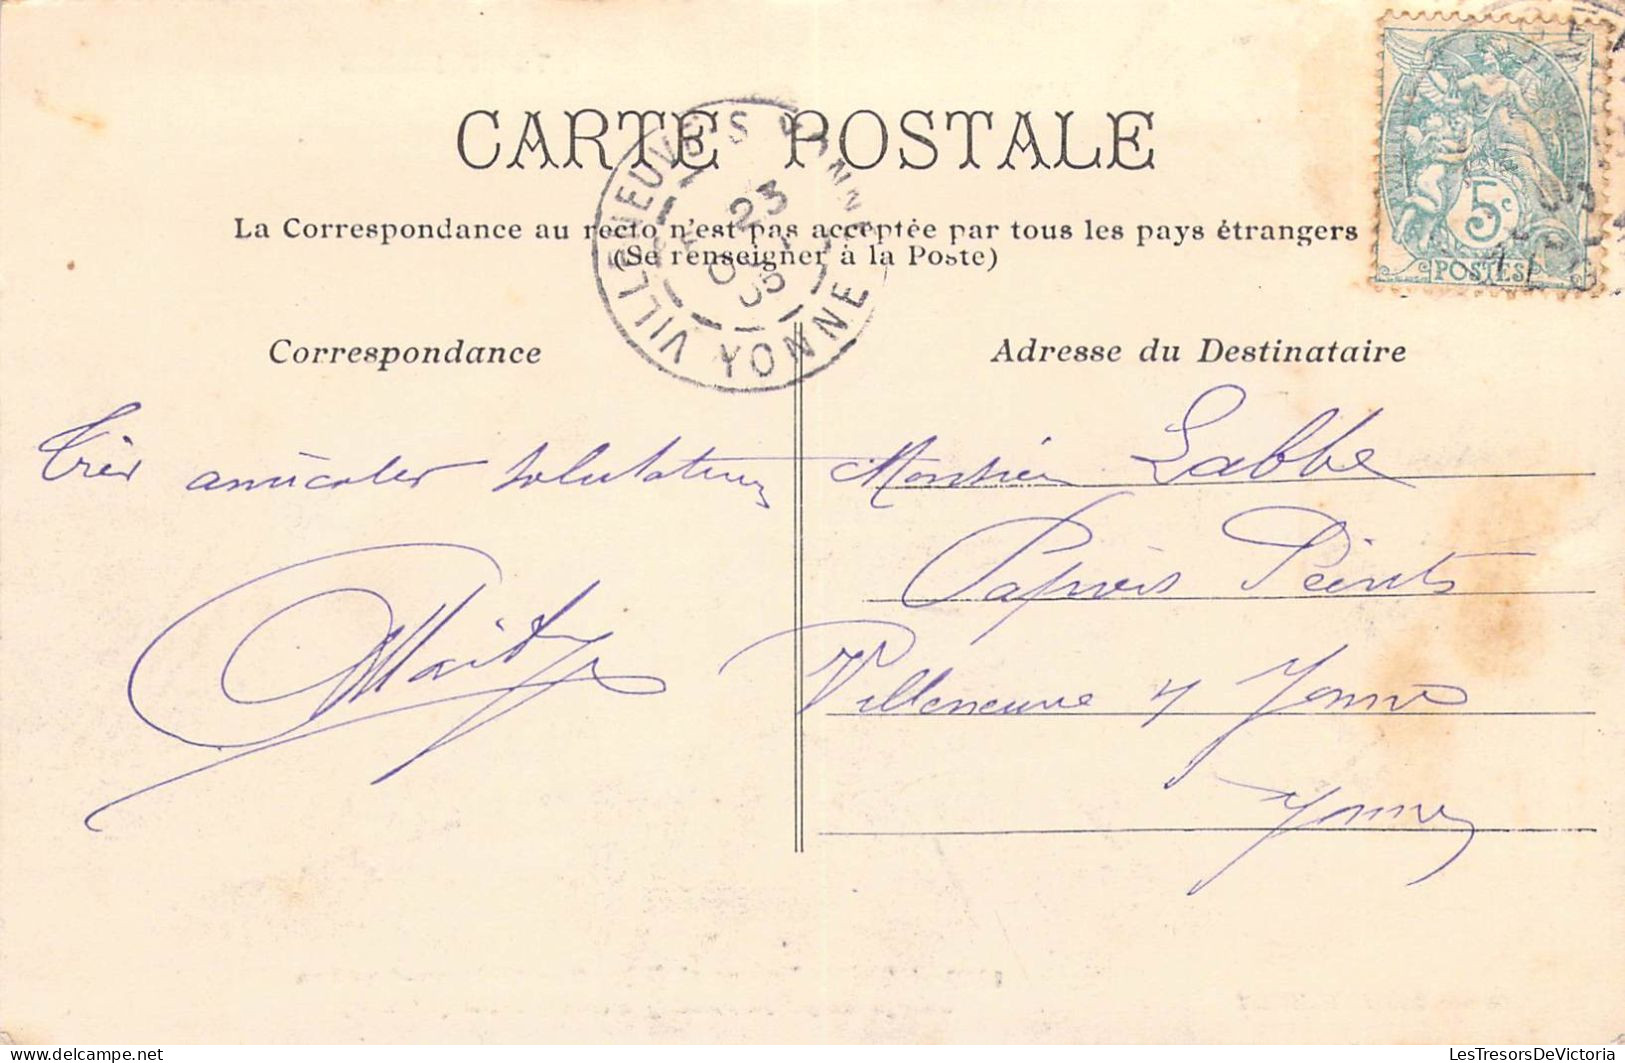 CARTE POSTALE
La Correspondance au recto n'est pas acceptée par tous les pays étrangers
(Se renseigner à la Poste)
VILLENEUVE S YONNE
23
05
YONNE
5c
POSTES
Correspondance
Adresse du Destinataire
Très amicales salutations
Monsieur Labbe
Papiers Peints
Villeneuve s/ Yonne
Yonne
delcampe.net
LesTresorsDeVictoria